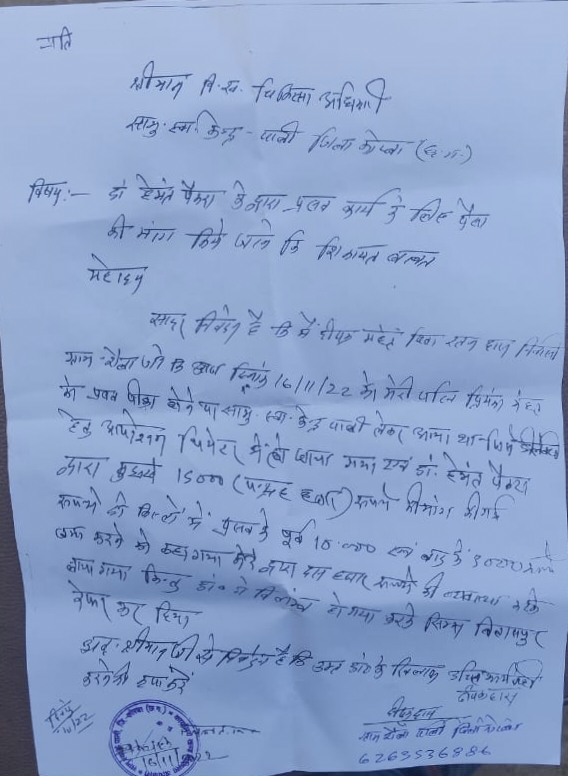 प्रति
श्रीमान वि.ख. चिकित्सा अधिकारी
सामु. स्वा. केन्द्र - पाली जिला कोरबा (छ.ग.)
विषय:- डॉ हेमंत पैकरा के द्वारा प्रसव कार्य के लिए पैसा
की मांग किये जाने कि शिकायत बाबत
महोदय
सादर निवेदन है कि मैं दीपक महंत पिता रतन दास निवासी
ग्राम - शैला जो कि आज दिनांक 16/11/22 को मेरी पत्नि प्रियंका महंत
को प्रसव पीड़ा होने पर सामु. स्वा. केन्द्र पाली लेकर आया था जिसे
हेतु आपरेशन थियेटर में ले जाया गया एवं डॉ. हेमंत पैकरा
द्वारा मुझसे 15000 (पन्द्रह हजार) रूपये की मांग की गई
रूपये दो किस्तों में प्रसव के पूर्व 10.000 एवं बाद में 5000 रूपये
जमा करने को कहा गया मेरे द्वारा दस हजार रूपये की व्यवस्था करके
लाया गया किन्तु डॉ. ने विलंब हो गया करके सिम्स बिलासपुर
रेफर कर दिया
अतः श्रीमान जी से निवेदन है कि उक्त डॉ. के खिलाफ उचित कार्यवाही
करने की कृपा करें
दीपक दास
दिनांक
ग्राम शैला पाली जिला कोरबा
16/11/22
6263536886